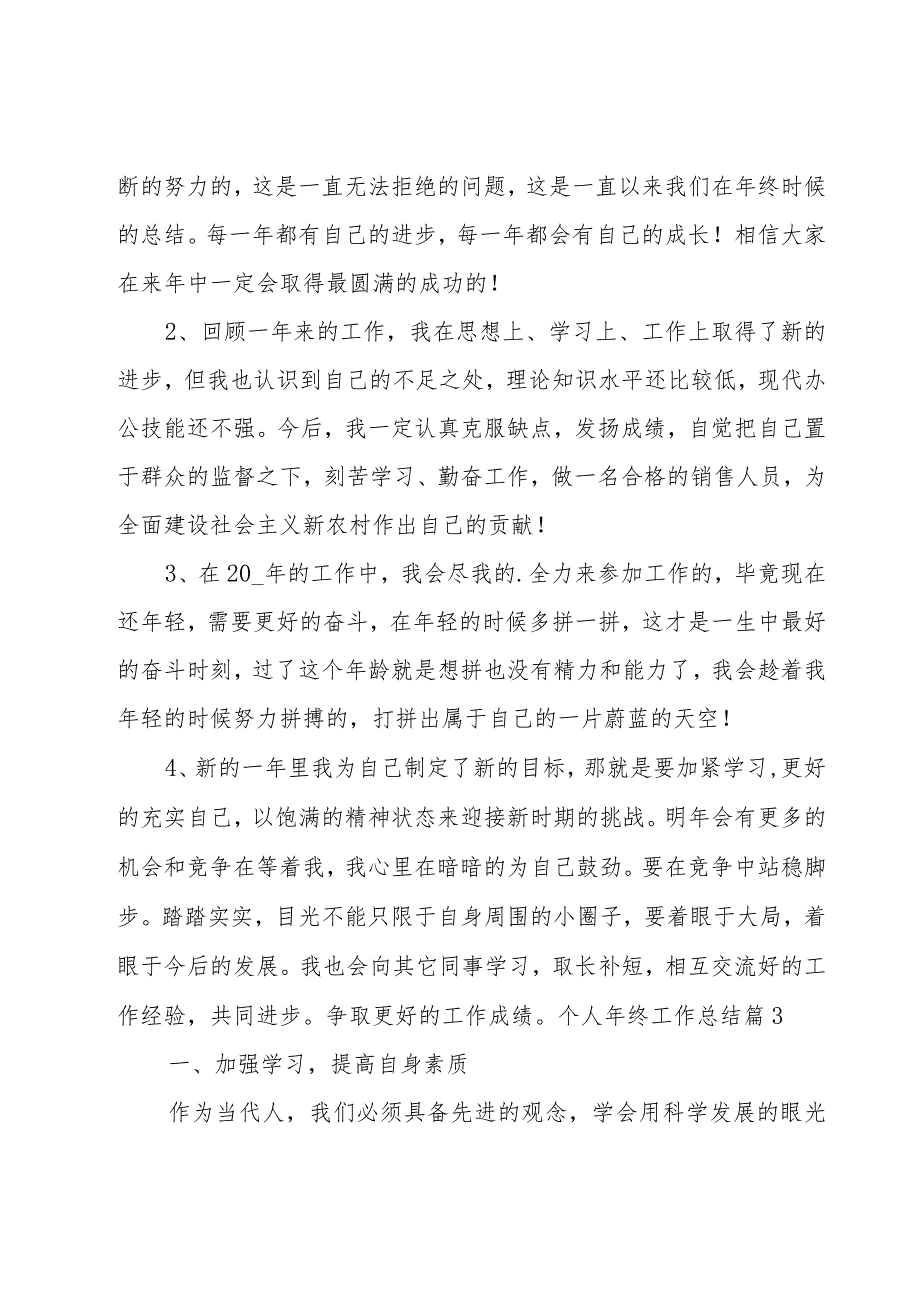 断的努力的，这是一直无法拒绝的问题，这是一直以来我们在年终时候
的总结。每一年都有自己的进步，每一年都会有自己的成长！相信大家
在来年中一定会取得最圆满的成功的！
2、回顾一年来的工作，我在思想上、学习上、工作上取得了新的
进步，但我也认识到自己的不足之处，理论知识水平还比较低，现代办
公技能还不强。今后，我一定认真克服缺点，发扬成绩，自觉把自己置
于群众的监督之下，刻苦学习、勤奋工作，做一名合格的销售人员，为
全面建设社会主义新农村作出自己的贡献！
3、在 20_年的工作中，我会尽我的.全力来参加工作的，毕竟现在
还年轻，需要更好的奋斗，在年轻的时候多拼一拼，这才是一生中最好
的奋斗时刻，过了这个年龄就是想拼也没有精力和能力了，我会趁着我
年轻的时候努力拼搏的，打拼出属于自己的一片蔚蓝的天空！
4、新的一年里我为自己制定了新的目标，那就是要加紧学习,更好
的充实自己，以饱满的精神状态来迎接新时期的挑战。明年会有更多的
机会和竞争在等着我，我心里在暗暗的为自己鼓劲。要在竞争中站稳脚
步。踏踏实实，目光不能只限于自身周围的小圈子，要着眼于大局，着
眼于今后的发展。我也会向其它同事学习，取长补短，相互交流好的工
作经验，共同进步。争取更好的工作成绩。个人年终工作总结篇 3
一、加强学习，提高自身素质
作为当代人，我们必须具备先进的观念，学会用科学发展的眼光